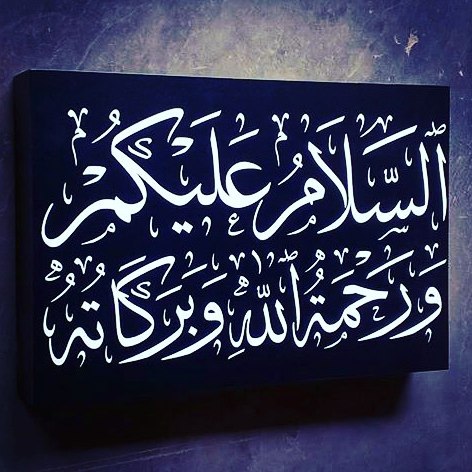 اَلسَّلَامُ عَلَيْكُمْ
وَرَحْمَةُ اللهِ وَبَرَكَاتُهُ